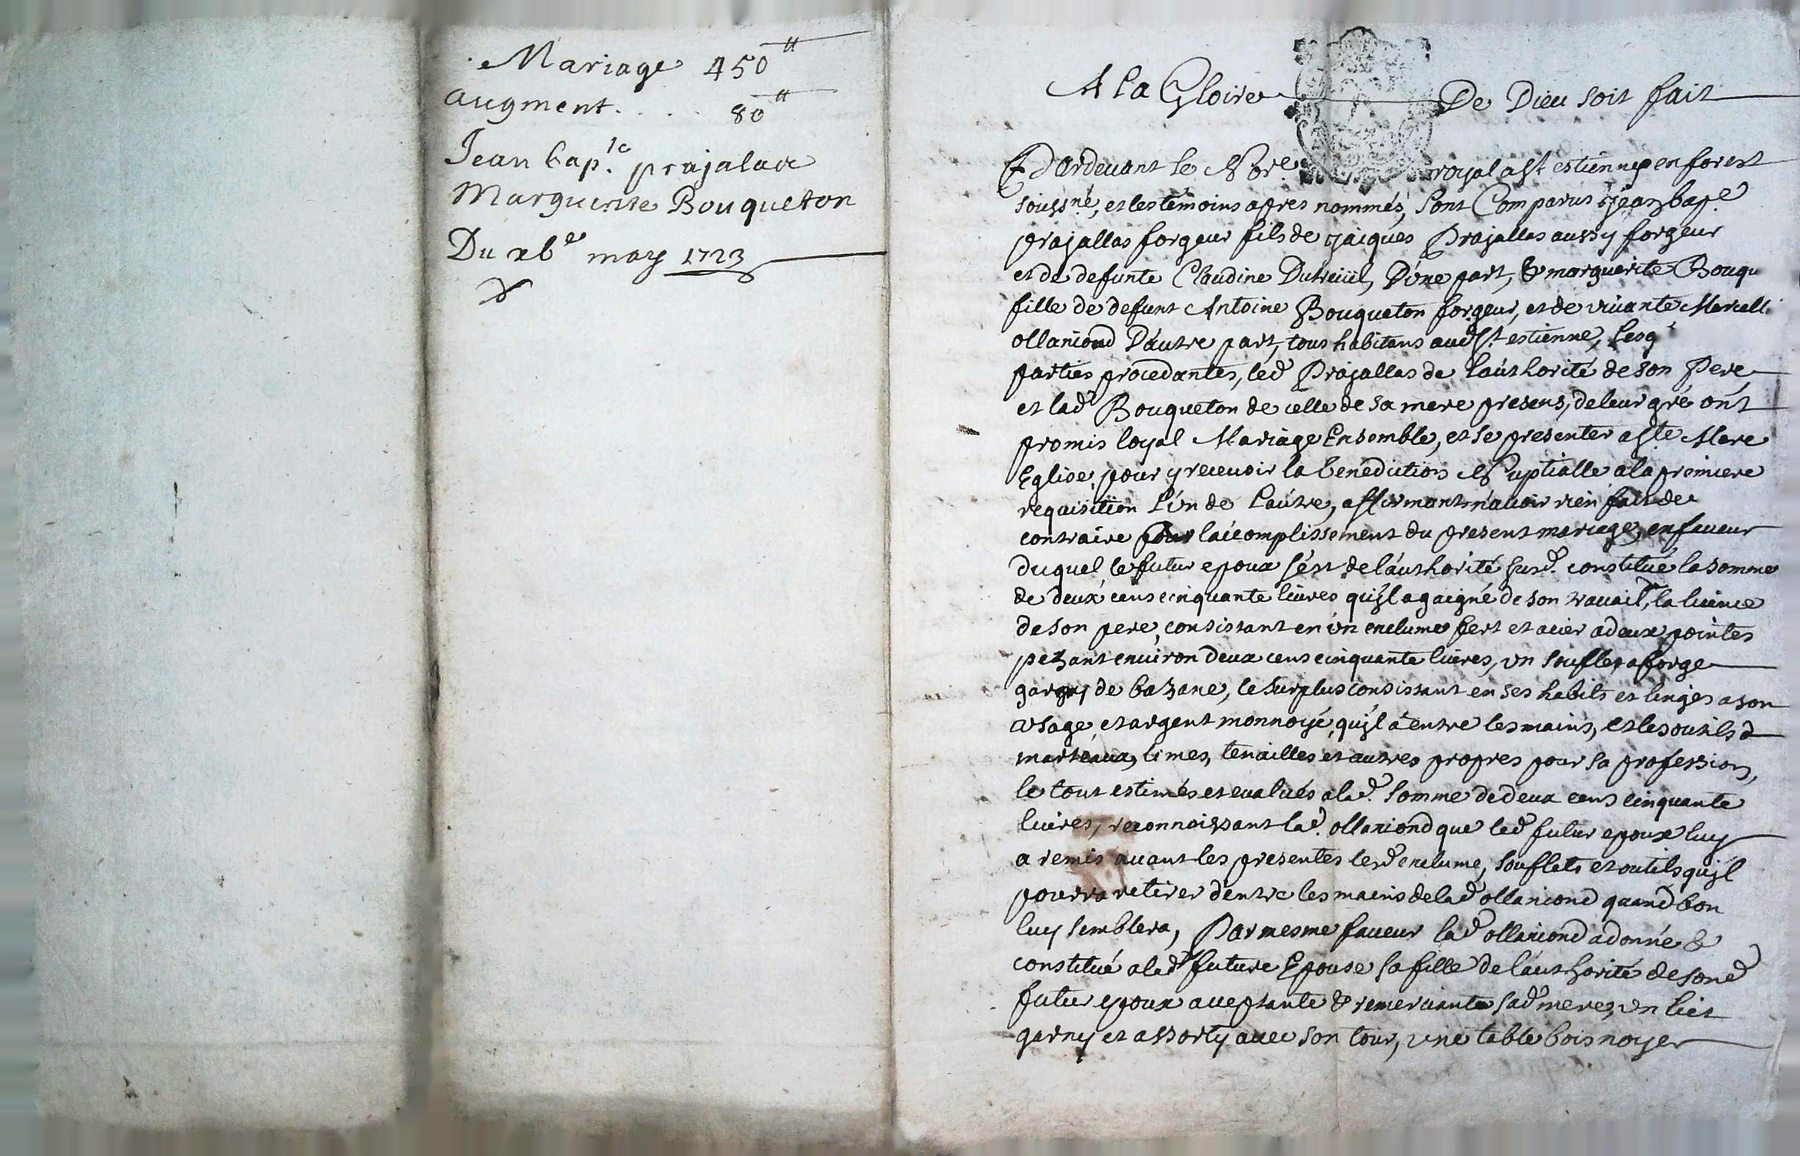 Mariage 450 ₶
augment. . . . 80 ₶
Jean bap.te prajalas
Marguerite Bouqueton
Du xbe may 1723
A la Gloire De Dieu soit fait
Pardevant le Nore royal a St estienne en forest
soussné, et les temoins apres nommés, sont Comparus Jean bap.e
prajallas forgeur fils de Jacques Prajallas aussy forgeur
et de defunte Claudine Dutreüil, D'une part, & marguerite Bouqu
fille de defunt Antoine Bouqueton forgeur, et de vivante Marcelli
ollaniond D'autre part, tous habitans aud. St. estienne, Lesq
parties procedantes, led. Prajallas de L'authorité de son Pere
et lad. Bouqueton de celle de sa mere presens, de leur gré ont
promis loyal Mariage Ensemble, et se presenter a Ste Mere
Eglise, pour y recevoir la benediction Nuptialle a la premiere
requisition L'un de L'autre, affirmant n'avoir rien fait de
contraire pour l'acomplissement du present mariage, en faveur
duquel, le futur epoux s'est de l'authorité susd. constitué la somme
de deux cens cinquante livres qu'jl a gaigné de son travail, la licence
de son pere, consistant en un enclume fert et acier a deux pointes
pezant environ deux cens cinquante livres, un souflet a forge
garny de bazane, le surplus consistant en ses habits et linges a son
usage, et argent monnoyé, qu'jl a entre les mains, et les outils d
marteaux, limes, tenailles et autres propres pour sa profession,
le tout estimés et evalués a lad. somme de deux cens cinquante
livres, reconnoissant lad. ollaniond que led. futur epoux luy
a remis avant les presentes lesd. enclume, souflets et outils qu'jl
pourra retirer d'entre les mains de lad. ollaniond quand bon
luy semblera, Par mesme faveur lad. ollaniond a donné &
constitué a lad. future Epouse sa fille de l'authorité de sond.
futur epoux acceptante & remerciante sad. mere, un lict
garny et assorty avec son tour, une table bois noyer